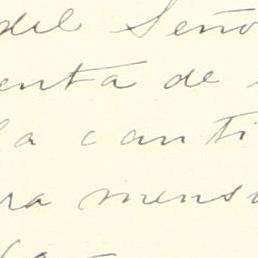 del Seño
enta de
la canti
ra mensu